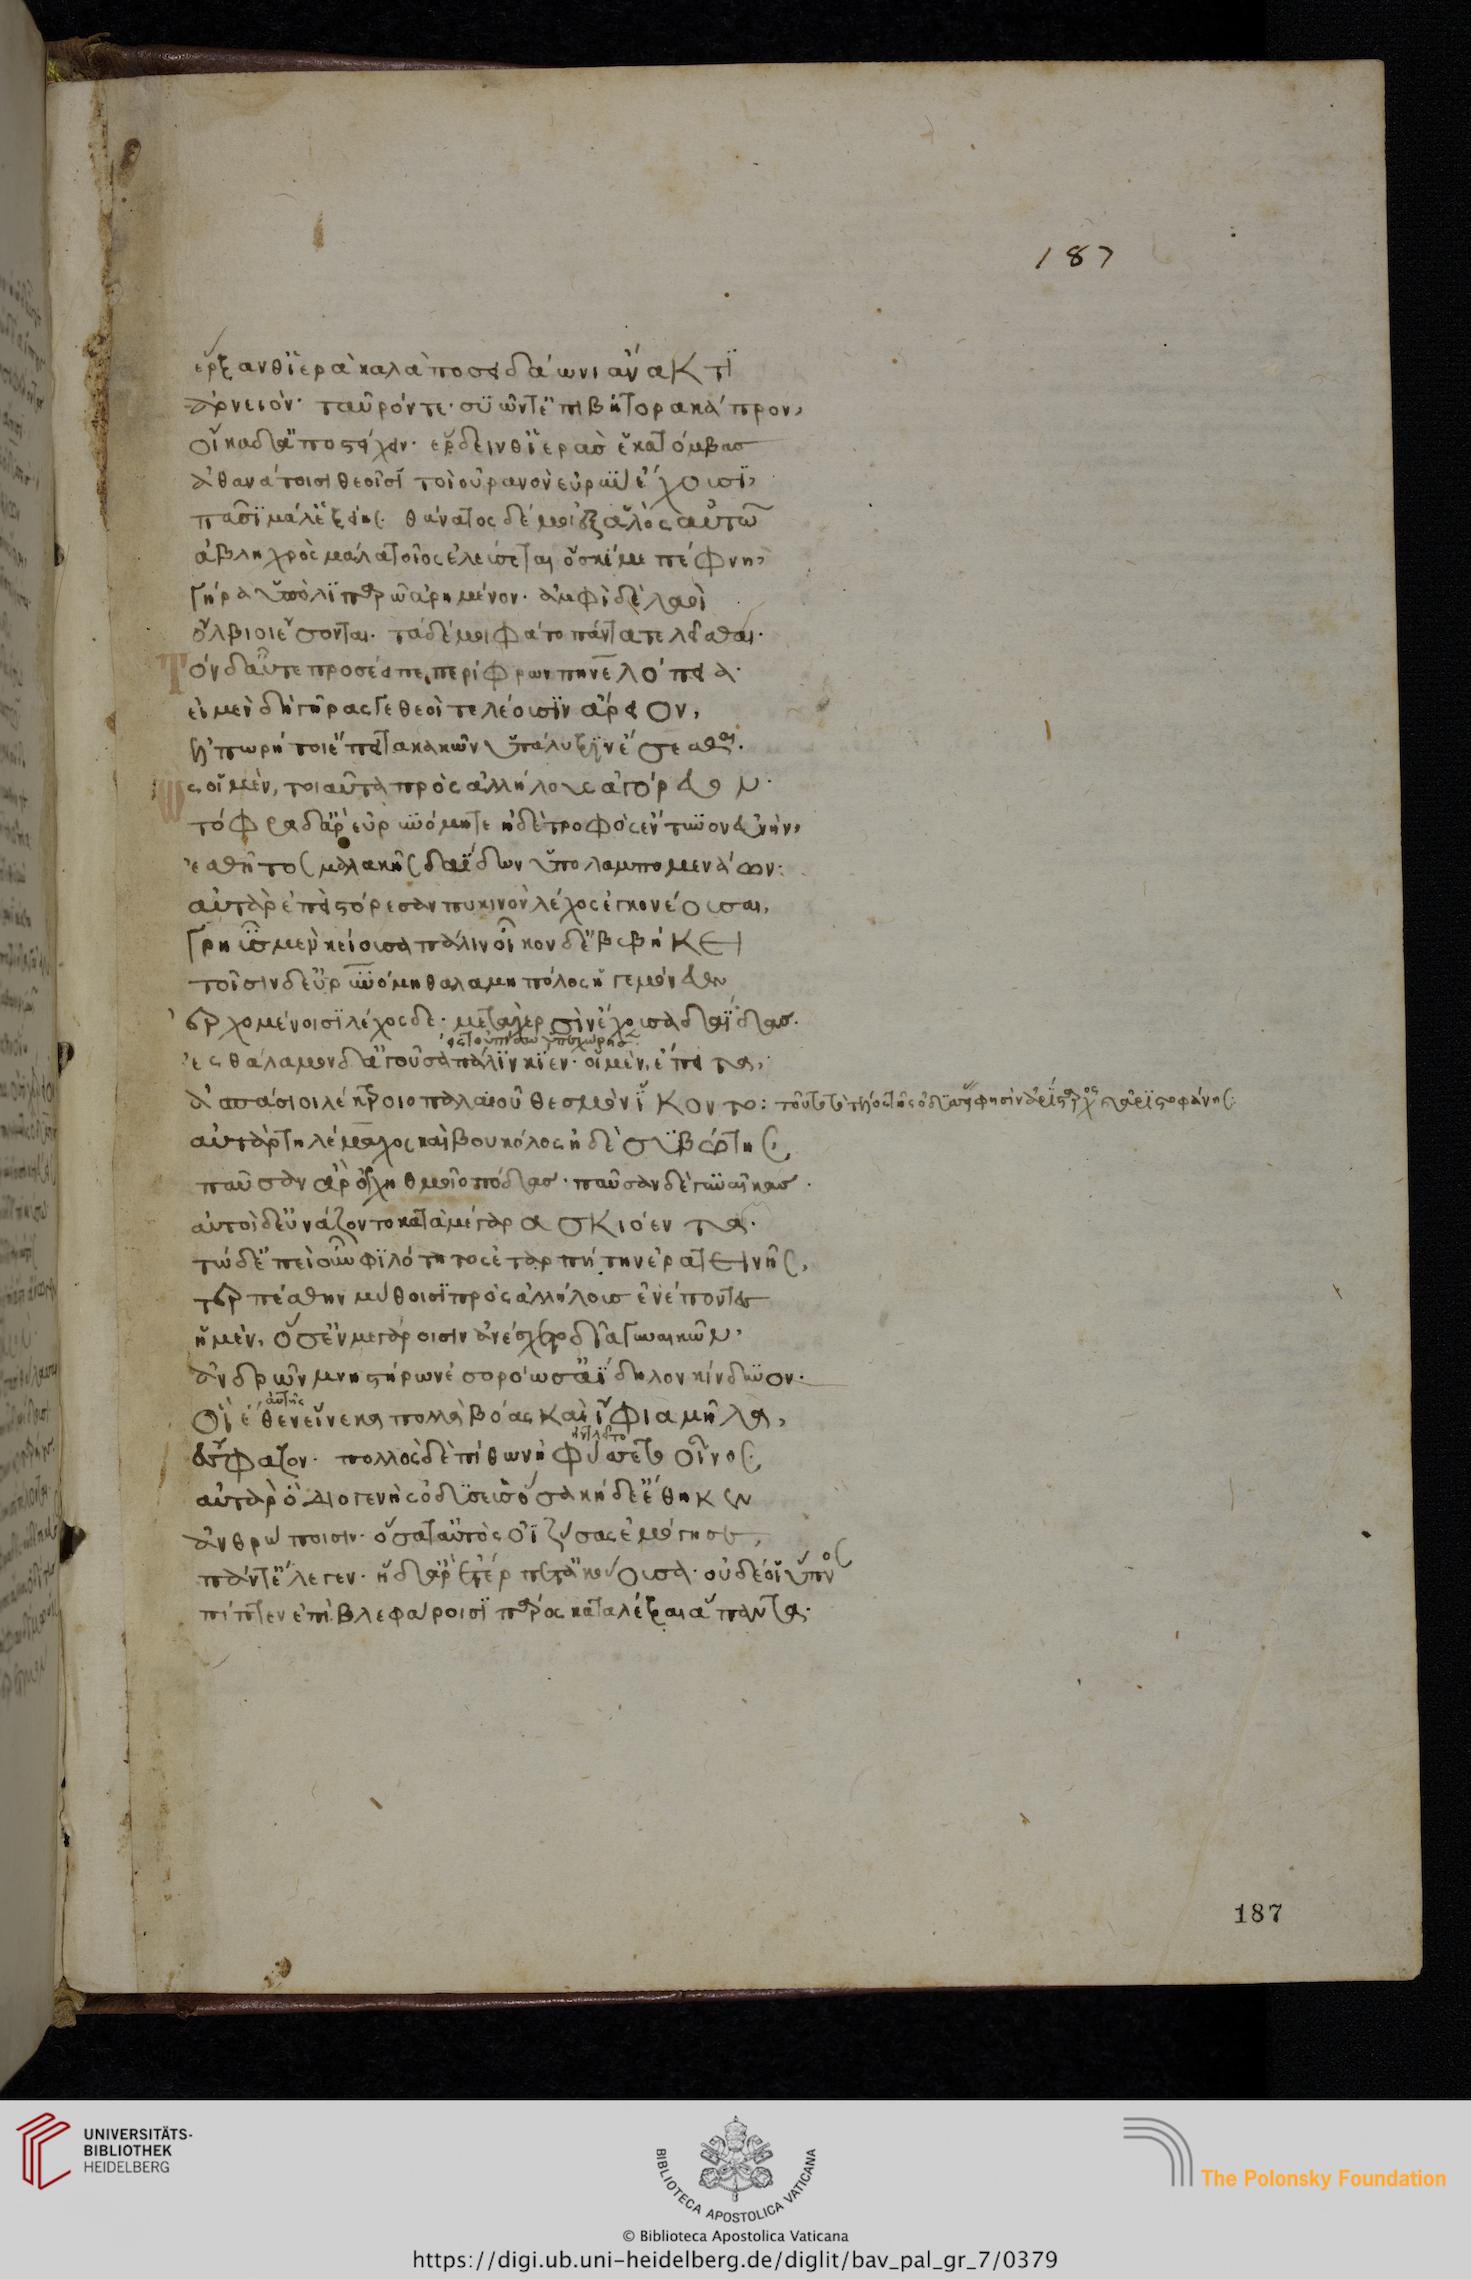 187
ἔρξανθ' ἱερὰ καλὰ ποσειδάωνι ἄνακτι
ἀρνειόν· ταῦρόν τε· συῶν τ' ἐπιβήτορα κάπρον,
οἴκαδ' ἀποστείχειν· ἔρδειν θ' ἱερὰς ἑκατόμβας
ἀθανάτοισι θεοῖσι τοὶ οὐρανὸν εὐρὺν ἔχουσι,
πᾶσι μάλ' ἑξείης· θάνατος δέ μοι ἐξ ἁλὸς αὐτῶ
ἀβληχρὸς μάλα τοῖος ἐλεύσεται ὅς κέ με πέφνη,
γήρα ὕπο λιπαρῶ ἀρημένον· ἀμφὶ δὲ λαοὶ
ὄλβιοι ἔσονται. τὰ δέ μοι φάτο πάντα τελεῖσθαι.
Τὸν δ' αὖτε προσέειπε περίφρων πηνελόπεια·
εἰ μὲν δὴ γῆράς γε θεοὶ τελέουσιν ἄρειον,
ἐλπωρή τοι ἔπειτα κακῶν ὑπάλυξιν ἔσεσθαι.
Ὣς οἱ μὲν, τοιαῦτα πρὸς ἀλλήλους ἀγόρευον·
τόφρα δ' ἄρ' εὐρυνόμη τε ἠδὲ τροφὸς ἔντυον εὐνὴν,
ἐσθῆτος μαλακῆς δαΐδων ὕπο λαμπομενάων:
αὐτὰρ ἐπεὶ στόρεσαν πυκινὸν λέχος ἐγκονέουσαι,
γρηῢς μὲν κείουσα πάλιν οἶκον δὲ βεβήκει
τοῖσιν δ' εὐρυνόμη θαλαμηπόλος ἡγεμόνευεν
ἐρχομένοισι λέχος δε· μετὰ χερσὶν ἔχουσα δαΐδας.
εἰς τοὐπίσω ὑπεχώρησε
ἐς θάλαμον δ' ἀγοῦσα πάλιν κίεν· οἱ μὲν, ἔπειτα,
ἀσπάσιοι λέκτροιο παλαιοῦ θεσμὸν ἵκοντο: τοῦτο τέλος τῆς ὀδυσσείας φησὶν ἀρίσταρχος καὶ ἀριστοφάνης:
αὐτὰρ τηλέμαχος καὶ βουκόλος ἠδὲ συβώτης,
παῦσαν ἄρ' ὀρχηθμοῖο πόδας· παῦσαν δὲ γυναῖκας.
αὐτοὶ δ' εὐνάζοντο κατὰ μέγαρα σκιόεντα.
τὼ δ' ἐπεὶ οὖν φιλότητος ἐταρπήτην ἐρατεινῆς,
τερπέσθην μύθοισι πρὸς ἀλλήλους ἐνέποντες
ἡ μὲν, ὅσ' ἐν μεγάροισιν ἀνέσχετο δῖα γυναικῶν,
ἀνδρῶν μνηστήρων ἐσορῶσ' ἀΐδηλον
αὐτῆς
οἳ ἕθεν εἵνεκα πολλὰ βόας καὶ ἴφια μῆλα,
ἠντλεῖτο
ἔσφαζον· πολλὸς δὲ πίθων ἠφύσετο οἶνος.
αὐτὰρ ὁ διογενὴς ὀδυσεὺς ὅσα κήδε' ἔθηκεν
ἀνθρώποισιν· ὅσα τ' αὐτὸς ὀϊζύσας ἐμόγησε,
πάντ' ἔλεγεν· ἡ δ' ἄρ' ἐτέρπετ' ἀκούουσα· οὐδέ οἱ ὕπνος
πίπτεν ἐπὶ βλεφάροισι πάρος καταλέξαι ἅπαντα.
187
UNIVERSITÄTS-
BIBLIOTHEK
HEIDELBERG
BIBLIOTECA APOSTOLICA VATICANA
The Polonsky Foundation
© Biblioteca Apostolica Vaticana
https://digi.ub.uni-heidelberg.de/diglit/bav_pal_gr_7/0379